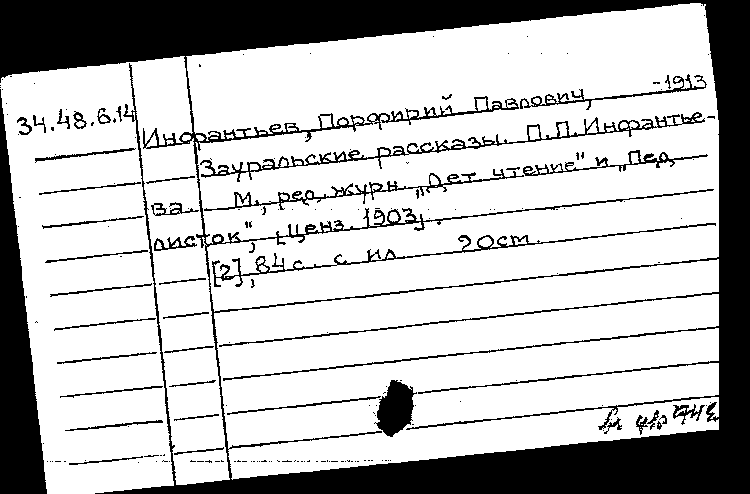 34.48.6.14
Инфантьев, Порфирий Павлович, -1913
Зауральские рассказы. П.П.Инфантье-
ва. М., ред. журн. „Дет. чтение" и „Пед.
листок", [Ценз. 1903].
[2], 84 с. с ил. 20 см.